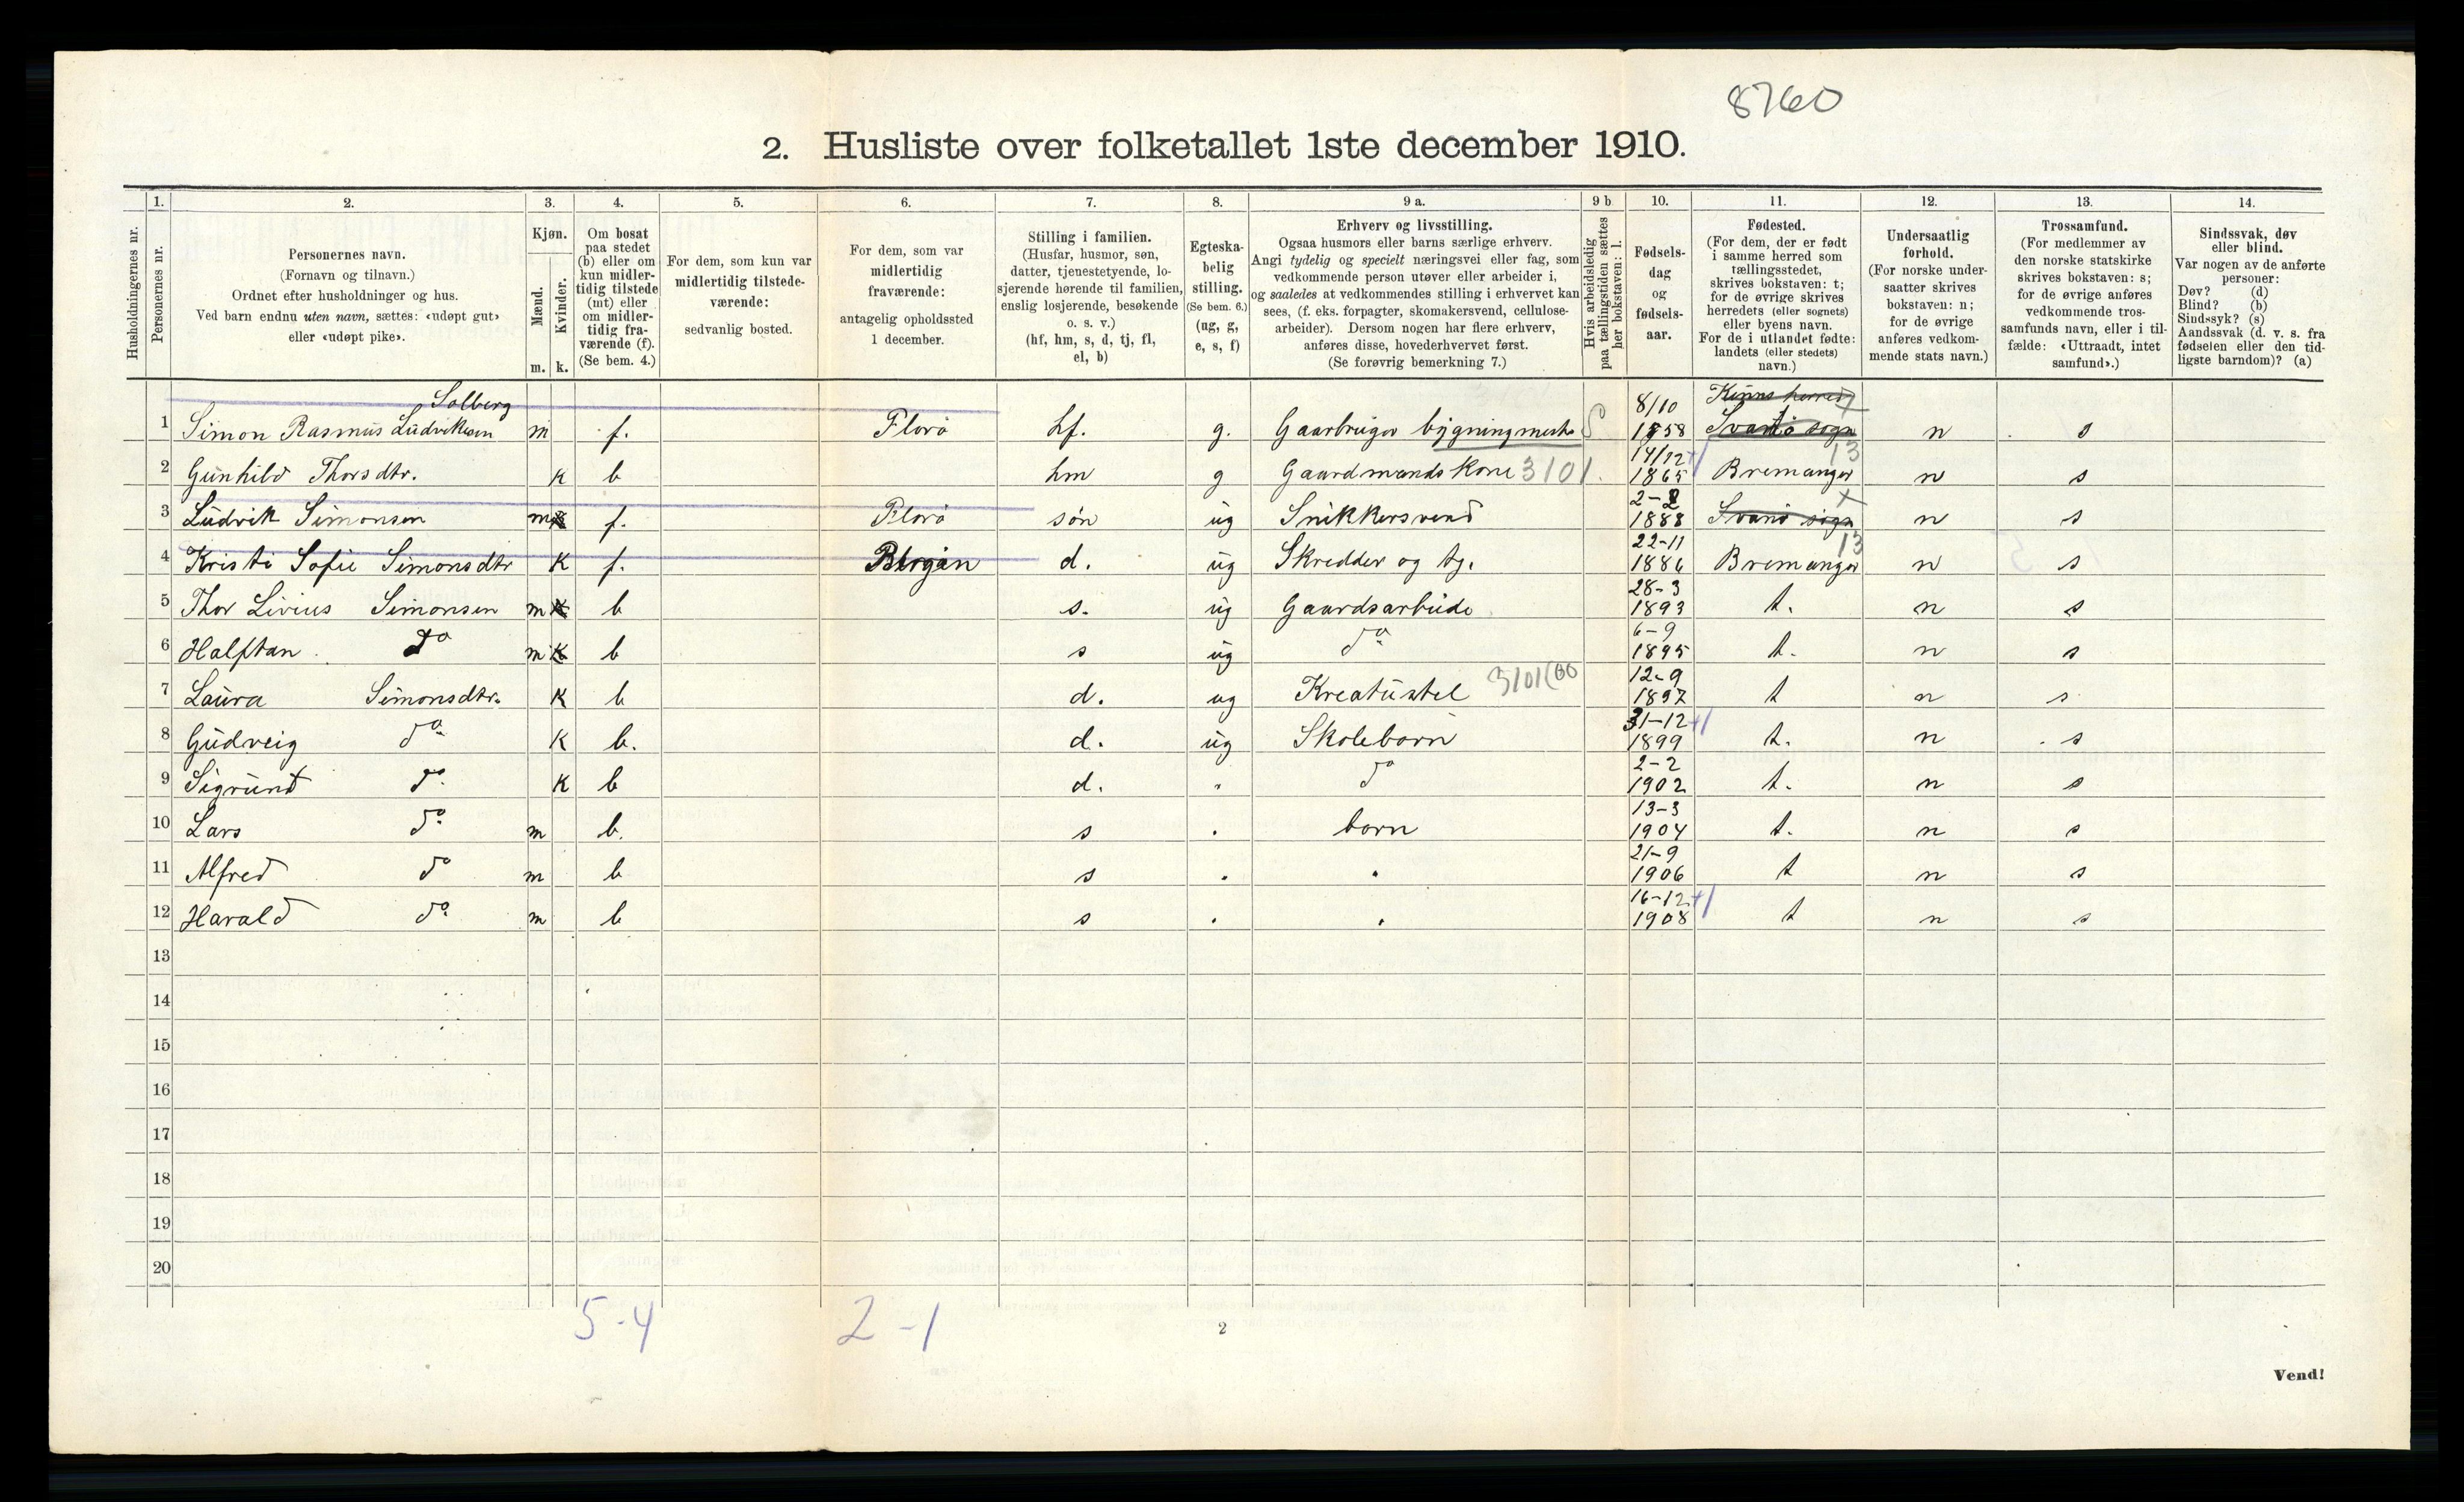 8760
2. Husliste over folketallet 1ste december 1910.
1. 2. 3. 4. 5. 6. 7. 8. 9 a. 9 b 10. 11. 12. 13. 14.
Husholdningernes nr.
Personernes nr.
Personernes navn.
(Fornavn og tilnavn.)
Ordnet efter husholdninger og hus.
Ved barn endnu uten navn, sættes: «udøpt gut»
eller «udøpt pike».
Kjøn.
Mænd.
Kvinder.
m. k.
Om bosat
paa stedet
(b) eller om
kun midler-
tidig tilstede
(mt) eller
om midler-
tidig fra-
værende (f).
(Se bem. 4.)
For dem, som kun var
midlertidig tilstede-
værende:
sedvanlig bosted.
For dem, som var
midlertidig
fraværende:
antagelig opholdssted
1 december.
Stilling i familien.
(Husfar, husmor, søn,
datter, tjenestetyende, lo-
sjerende hørende til familien,
enslig losjerende, besøkende
o. s. v.)
(hf, hm, s, d, tj, fl,
el, b)
Egteska-
belig
stilling.
(Se bem. 6.)
(ug, g,
e, s, f)
Erhverv og livsstilling.
Ogsaa husmors eller barns særlige erhverv.
Angi tydelig og specielt næringsvei eller fag, som
vedkommende person utøver eller arbeider i,
og saaledes at vedkommendes stilling i erhvervet kan
sees, (f. eks. forpagter, skomakersvend, cellulose-
arbeider). Dersom nogen har flere erhverv,
anføres disse, hovederhvervet først.
(Se forøvrig bemerkning 7.)
Hvis arbeidsledig
paa tællingstiden sættes
her bokstaven: l.
Fødsels-
dag
og
fødsels-
aar.
Fødested.
(For dem, der er født
i samme herred som
tællingsstedet,
skrives bokstaven: t;
for de øvrige skrives
herredets (eller sognets)
eller byens navn.
For de i utlandet fødte:
landets (eller stedets)
navn.)
Undersaatlig
forhold.
(For norske under-
saatter skrives
bokstaven: n;
for de øvrige
anføres vedkom-
mende stats navn.)
Trossamfund.
(For medlemmer av
den norske statskirke
skrives bokstaven: s;
for de øvrige anføres
vedkommende tros-
samfunds navn, eller i til-
fælde: «Uttraadt, intet
samfund».)
Sindssvak, døv
eller blind.
Var nogen av de anførte
personer:
Døv? (d)
Blind? (b)
Sindssyk? (s)
Aandssvak (d. v. s. fra
fødselen eller den tid-
ligste barndom)? (a)
Solberg 8/10 Kinns herred
1 Simon Rasmus Ludviksen m f. Florø hf. g. Gaarbruger bygningmest S 1858 Svanø sogn n s
14/12 13
2 Gunhild Thorsdtr. k b hm g Gaardmands Kone 3101. 1865 Bremanger n s
2-2
3 Ludvik Simonsen m f. Florø søn ug Snikkersvend 1888 Svanø sogn n s
22-11 13
4 Kristi Sofie Simonsdtr K f. d. ug Skredder og tg. 1886 Bremanger n s
28-3
5 Thor Livius Simonsen m K b s. ug Gaardsarbeide 1893 t. n s
6-9
6 Halftan do m K b s ug do 1895 t. n s
12-9
7 Laura Simonsdtr. K b d. ug Kreatustel 3101 1897 t n s
31-12
8 Gudveig do K b. d. ug Skolebarn 1899 t. n s
2-2
9 Sigrund do K b d. " do 1902 t. n s
13-3
10 Lars do m b. s " barn 1904 t. n s
21-9
11 Alfred do m b s " " 1906 t n s
16-12
12 Harald do m b s " " 1908 t n s
13
14
15
16
17
18
19
20
5-4 2-1
2
Vend!